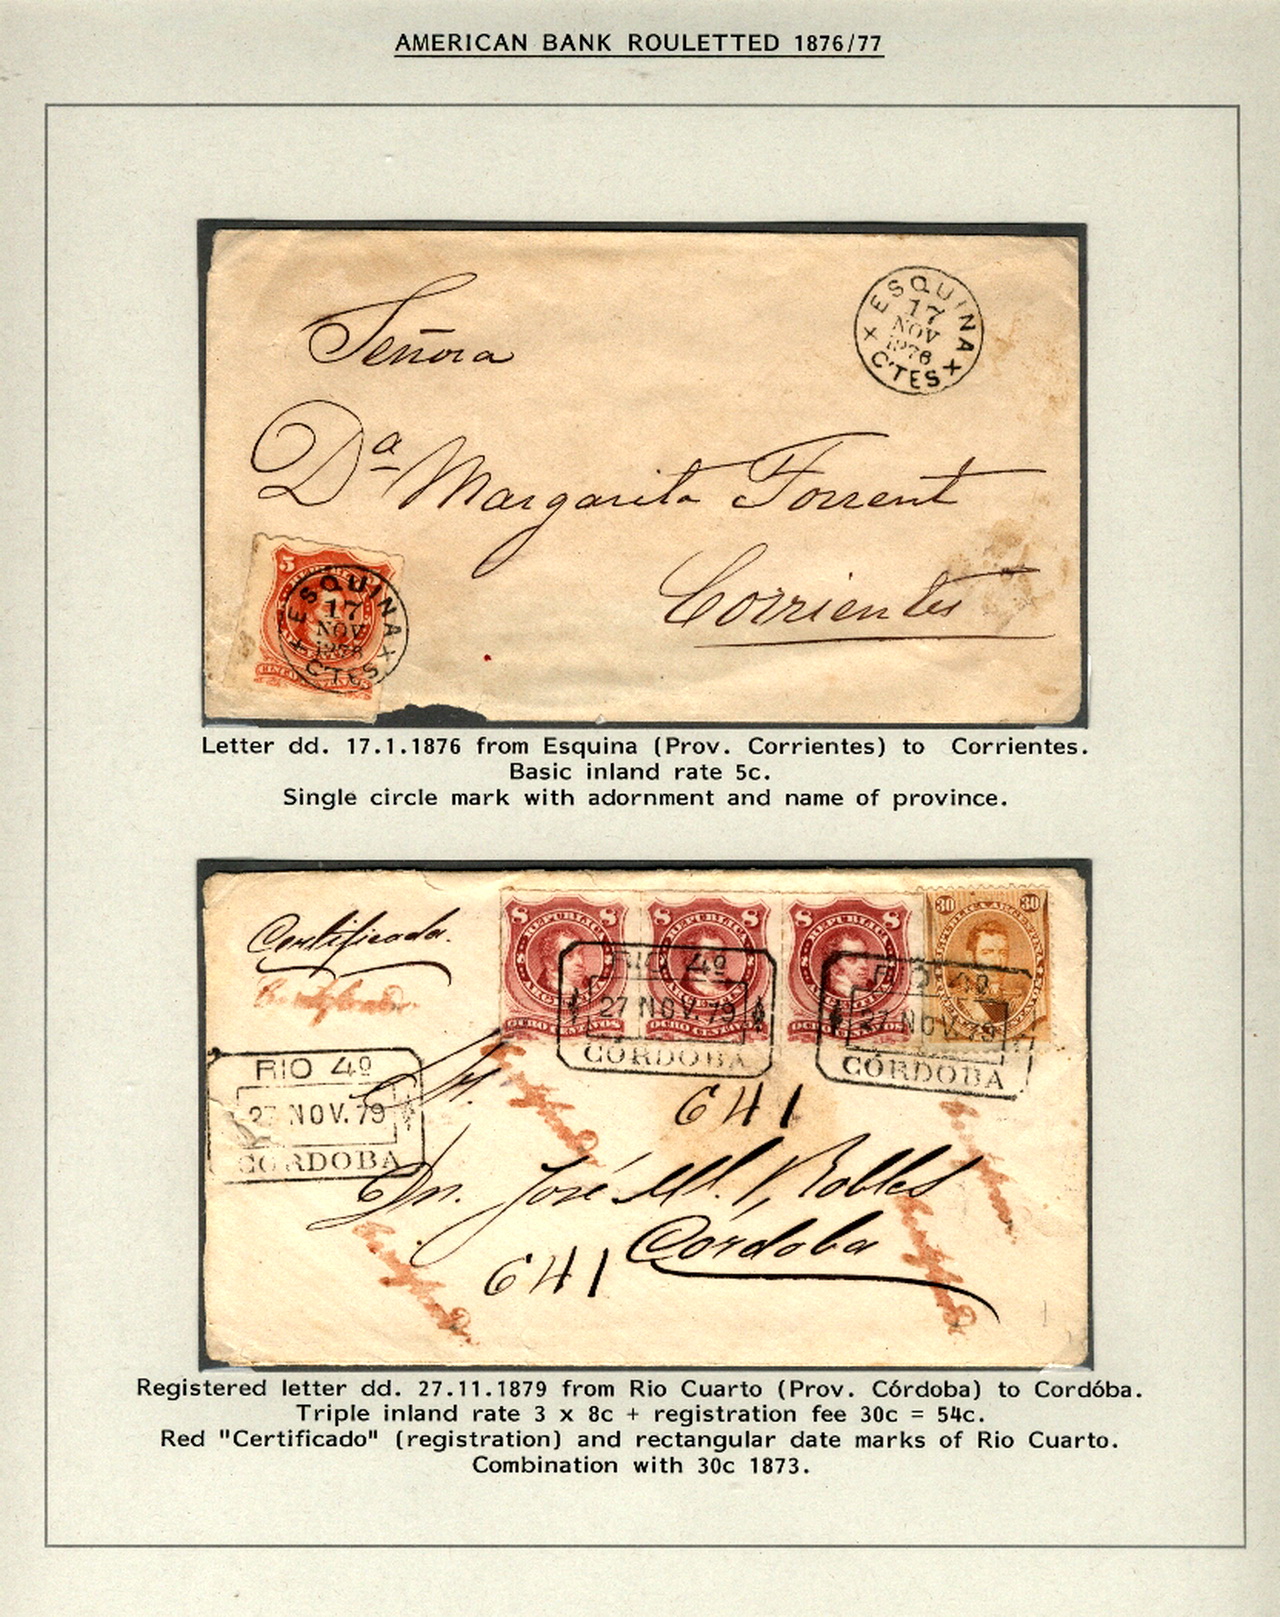 AMERICAN BANK ROULETTED 1876/77
Señora
ESQUINA
17
NOV
1876
C'TES
Dª Margarita Torrent
Corrientes
5
ESQUINA
17
NOV
1876
C'TES
CINCO CENTAVOS
Letter dd. 17.1.1876 from Esquina (Prov. Corrientes) to Corrientes.
Basic inland rate 5c.
Single circle mark with adornment and name of province.
Certificada.
8 REPUBLICA 8
8 REPUBLICA 8
8 REPUBLICA 8
30 REPUBLICA ARGENTINA 30
OCHO CENTAVOS
OCHO CENTAVOS
OCHO CENTAVOS
RIO 4º
27 NOV. 79
CÓRDOBA
RIO 4º
27 NOV. 79
CÓRDOBA
RIO 4º
27 NOV. 79
CÓRDOBA
Sr.
641
Dn. José Ml. V, Robles
Córdoba
641
Registered letter dd. 27.11.1879 from Rio Cuarto (Prov. Córdoba) to Cordóba.
Triple inland rate 3 x 8c + registration fee 30c = 54c.
Red "Certificado" (registration) and rectangular date marks of Rio Cuarto.
Combination with 30c 1873.